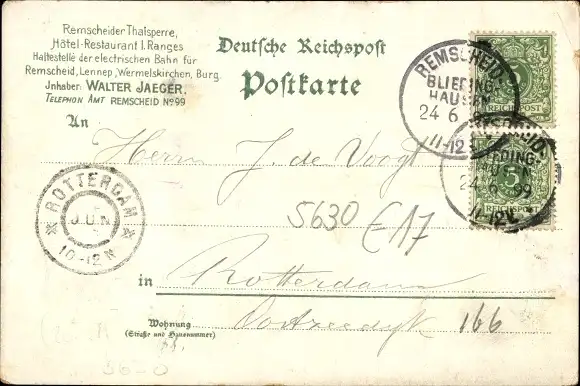 Remscheider Thalsperre,
Hôtel-Restaurant I. Ranges
Haltestelle der electrischen Bahn für
Remscheid, Lennep, Wermelskirchen, Burg.
Jnhaber: WALTER JAEGER.
TELEPHON AMT REMSCHEID No 99
Deutsche Reichspost
Postkarte
REMSCHEID-
BLIEDING-
HAUSEN
24 6
11-12V
REICHSPOST
5
24 6 99
11-12V
REICHSPOST
An
Herrn J. de Voogt
ROTTERDAM
JUN
10-12N
5630 E17
in
Rotterdam
Wohnung
(Straße und Hausnummer)
Oostzeedyk 166